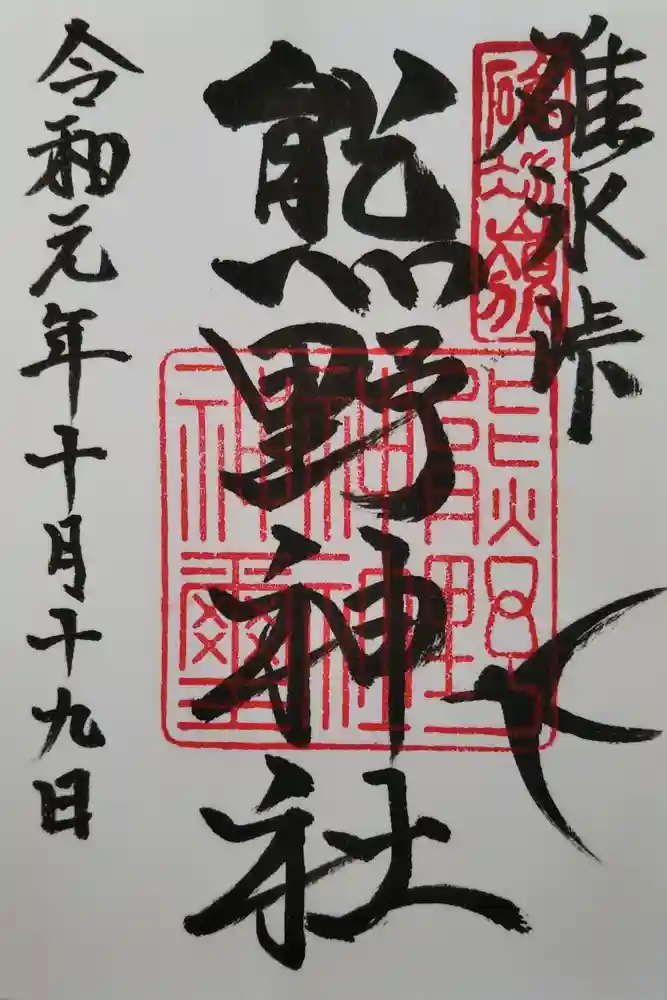 碓氷峠
碓氷嶺
熊野神社
熊野神社神璽
令和元年十月十九日